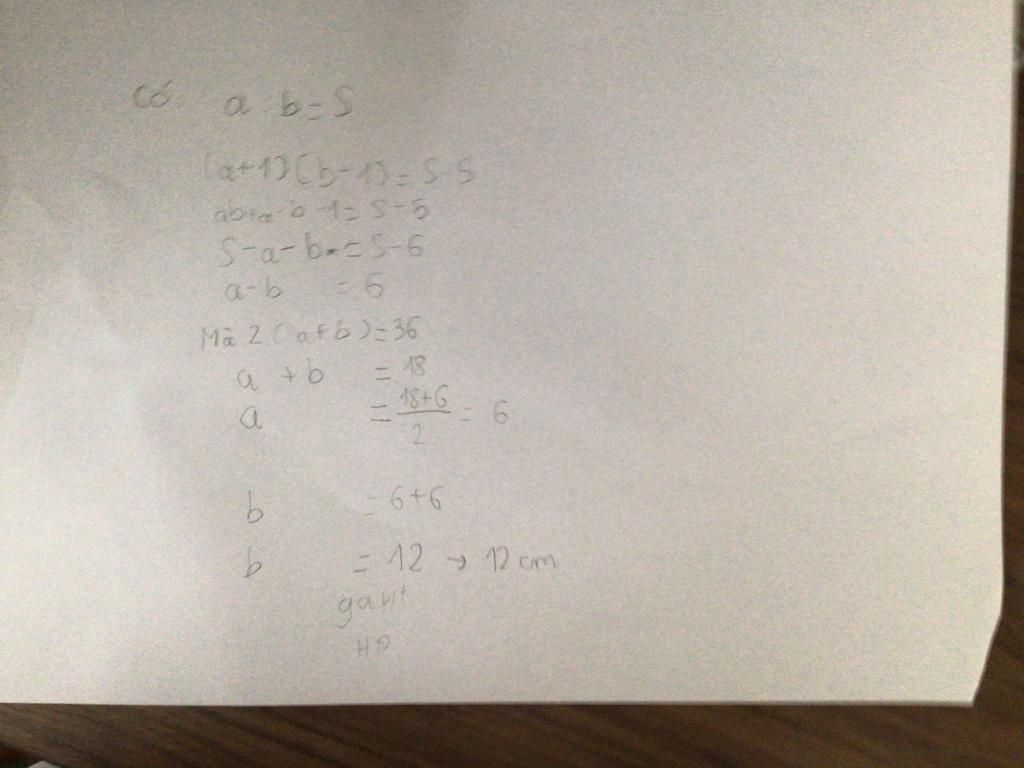 Có: a . b = S
(a+1)(b-1) = S-5
ab+a-b-1 = S-5
S-a-b = S-6
a-b = 6
Mà 2(a+b)=36
a + b = 18
a = \frac{18+6}{2} = 6
b = 6+6
b = 12 → 12 cm